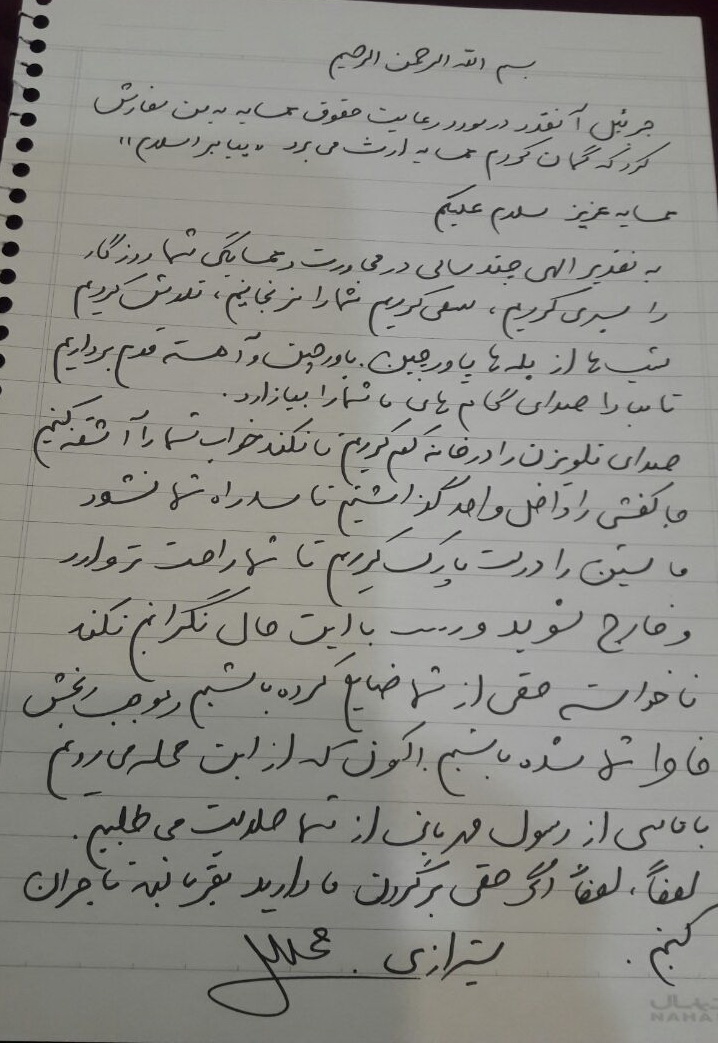 بسم الله الرحمن الرحیم
جبرئیل آنقدر در مورد رعایت حقوق همسایه به من سفارش
کرد که گمان کردم همسایه ارث می برد "پیامبر اسلام"
همسایه عزیز سلام علیکم
به تقدیر الهی چند سالی در مجاورت و همسایگی شما روزگار
را سپری کردیم، سعی کردیم شما را نرنجانیم، تلاش کردیم
شب ها از پله ها پاورچین، پاورچین و آهسته قدم برداریم
تا مبادا صدای گام های ما شما را بیازارد.
صدای تلویزن را در خانه کم کردیم تا نکند خواب شما را آشفته کنیم
جا کفشی را داخل واحد گذاشتیم تا سد راه شما نشود
ماشین را درست پارک کردیم تا شما راحت تر وارد
و خارج شوید و ... با این حال نگرانیم نکند
ناخواسته حقی از شما ضایع کرده باشیم و موجب رنجش
خاطر شما شده باشیم. اکنون که از این محله می رویم
با تاسی از رسول مهربانی از شما حلالیت می طلبیم.
لطفاً، لطفاً اگر حقی برگردن ما دارید بفرمائید تا جبران
کنیم.
شیرازی.
NAHA